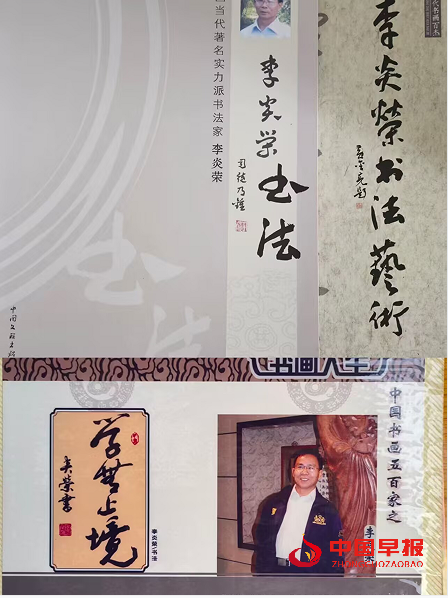 国当代著名实力派书法家 李炎荣
李炎荣书法
李炎榮书法藝術
代书画百杰
书法
书画人生
中国书画五百家之
学无止境
炎荣书
李炎荣 书法
李炎荣
中国早报
ZHONGGUOZAOBAO